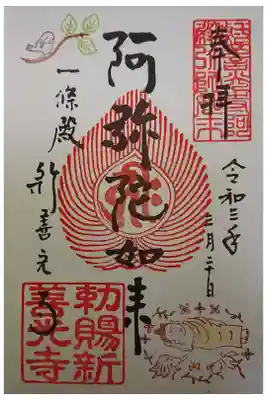 奉拝
令和三年
月二十日
阿弥陀如来
一條殿
新善光寺
勅賜新
善光寺